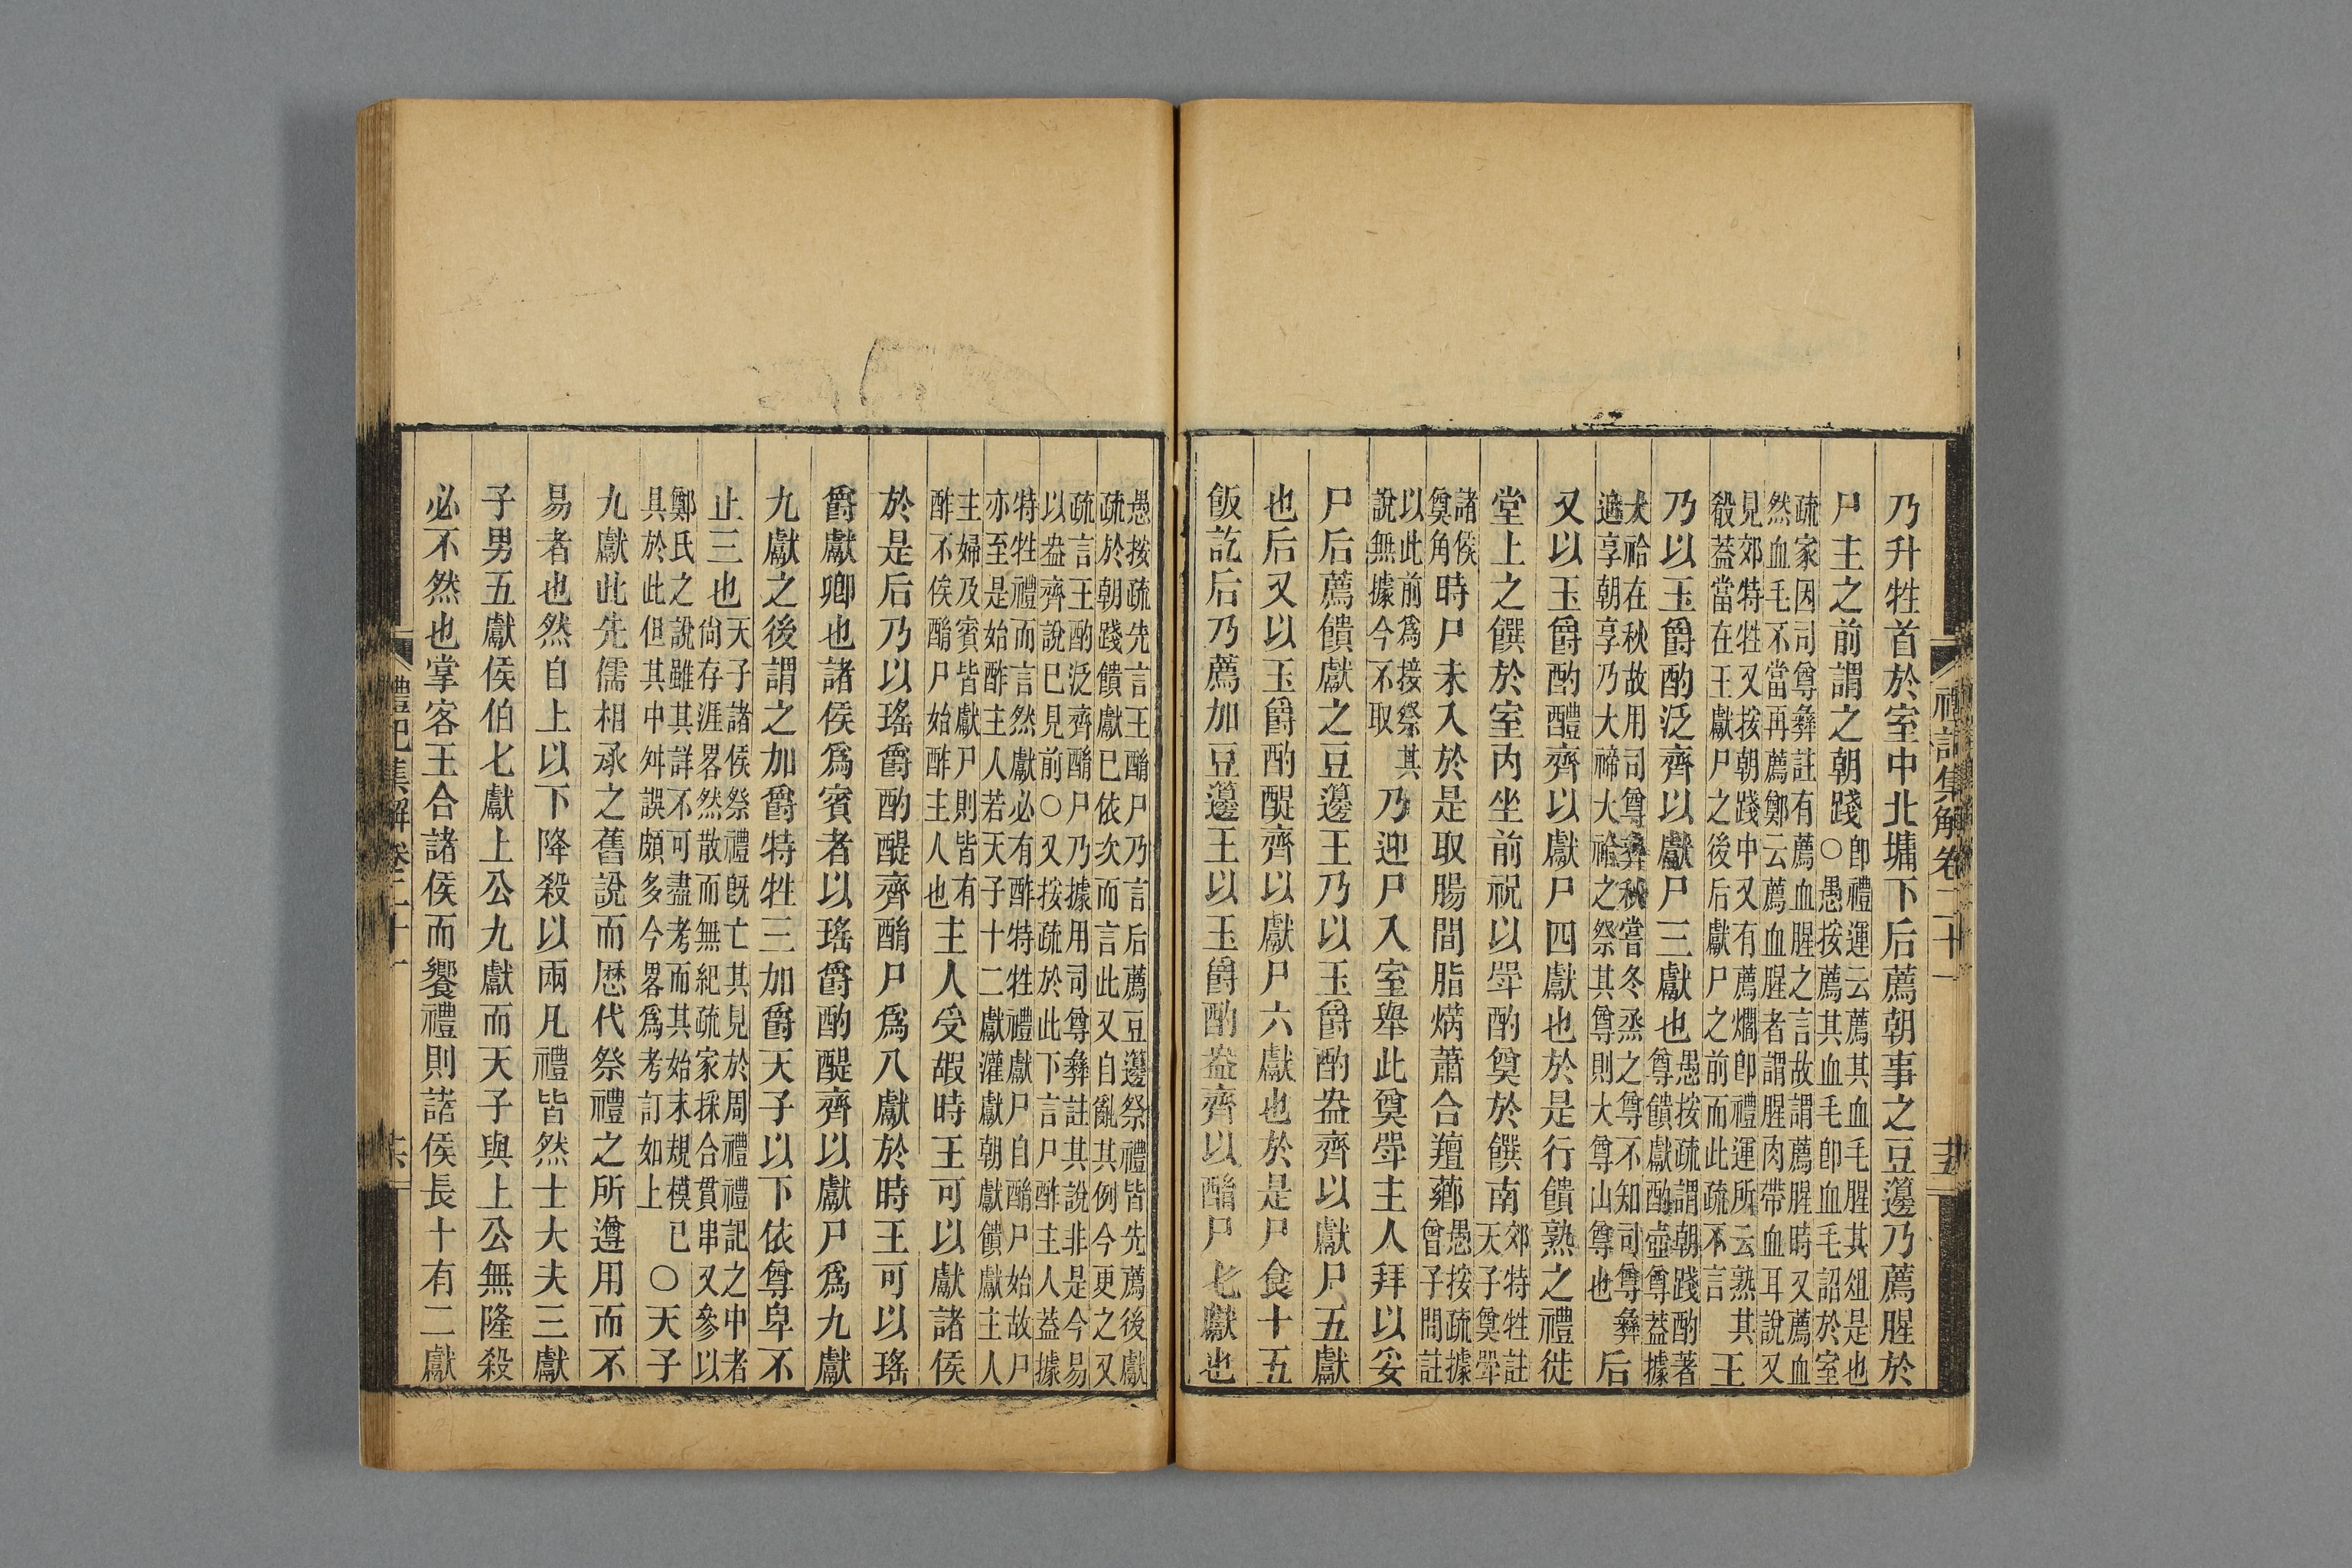 乃升牲首於室中北墉下后薦朝事之豆籩乃薦腥於
尸主之前謂之朝踐○卽禮運云薦其血毛腥其俎是也
愚按薦其血毛卽血毛詔於室
疏家因司尊彝註有薦血腥之言故謂薦腥時又薦血
然血毛不當再薦鄭云薦血腥者謂腥肉帶血耳說又
見郊特牲又按朝踐中又有薦爓卽禮運所云熟其
殽蓋當在王獻尸之後后獻尸之前而此疏不言
王
乃以玉爵酌泛齊以獻尸三獻也
愚按疏謂朝踐酌著
尊饋獻酌壺尊蓋據
大祫在秋故用司尊彝秋嘗冬烝之尊不知司尊彝
追享朝享乃大禘大祫之祭其尊則大尊山尊也
后
又以玉爵酌醴齊以獻尸四獻也於是行饋熟之禮徙
堂上之饌於室內坐前祝以斝酌奠於饌南
郊特牲註
天子奠斝
諸侯
奠角
時尸未入於是取腸間脂焫蕭合羶薌
愚按疏據
曾子問註
以此前爲接祭其
說無據今不取
乃迎尸入室舉此奠斝主人拜以妥
尸后薦饋獻之豆籩王乃以玉爵酌盎齊以獻尸五獻
也后又以玉爵酌醍齊以獻尸六獻也於是尸食十五
飯訖后乃薦加豆籩王以玉爵酌盎齊以酳尸七獻也
禮記集解卷二十一
愚按疏先言王酳尸乃言后薦豆籩祭禮皆先薦後獻
疏於朝踐饋獻已依次而言此又自亂其例今更之又
疏言王酌泛齊酳尸乃據用司尊彝註其說非是今易
以盎齊說已見前○又按疏於此下言尸酢主人蓋據
特牲禮而言然獻必有酢特牲禮獻尸自酳尸始故尸
亦至是始酢主人若天子十二獻灌獻朝獻饋獻主人
主婦及賓皆獻尸則皆有
酢不俟酳尸始酢主人也
主人受嘏時王可以獻諸侯
於是后乃以瑤爵酌醍齊酳尸爲八獻於時王可以瑤
爵獻卿也諸侯爲賓者以瑤爵酌醍齊以獻尸爲九獻
九獻之後謂之加爵特牲三加爵天子以下依尊卑不
止三也
天子諸侯祭禮旣亡其見於周禮禮記之中者
尙存涯畧然散而無紀疏家採合貫串又參以
鄭氏之說雖其詳不可盡考而其始末規模已
具於此但其中舛誤頗多今畧爲考訂如上
○天子
九獻此先儒相承之舊說而歷代祭禮之所遵用而不
易者也然自上以下降殺以兩凡禮皆然士大夫三獻
子男五獻侯伯七獻上公九獻而天子與上公無隆殺
必不然也掌客王合諸侯而饗禮則諸侯長十有二獻
禮記集解卷二十一